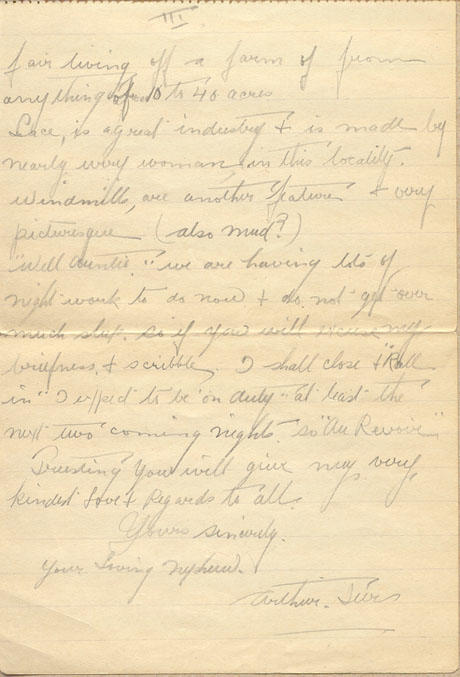 III
fair living off a farm of from
anything 10 to 40 acres
Lace, is a great industry & is made by
nearly every woman, in this locality.
Windmills, are another "feature" & very
picturesque (also mud?)
"Well Auntie." we are having lots of
night work to do now & do not get over
much slep. so if you will excuse my
briefness, & scribble. I shall close & "Roll
in" I expect to be "on duty" at least the
next two coming nights. so "Au Revoir"
Trusting you will give my very
kindest Love & Regards to all.
Yours sincerely.
Your Loving Nephew.
Arthur.